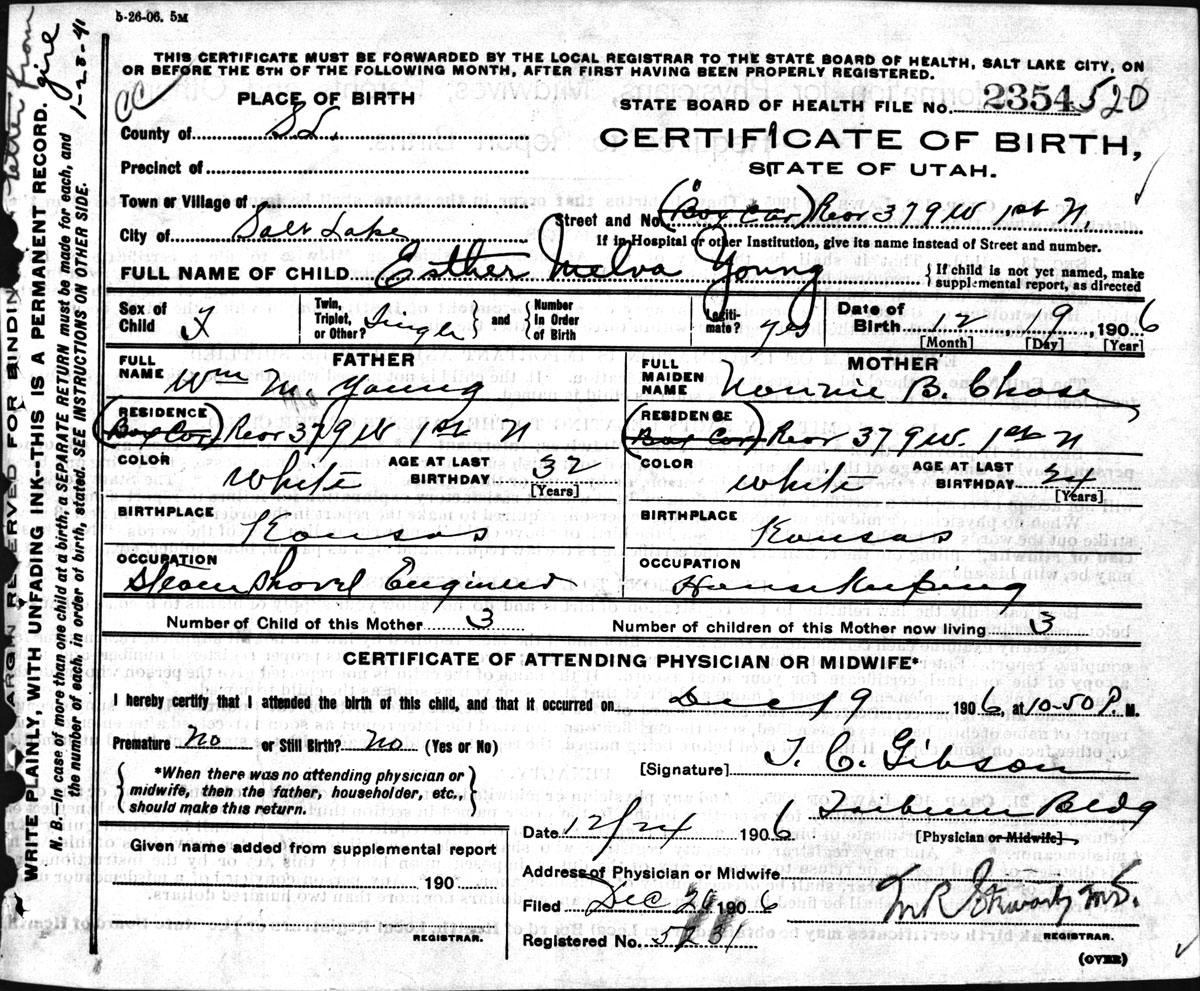 5-26-06. 5M
THIS CERTIFICATE MUST BE FORWARDED BY THE LOCAL REGISTRAR TO THE STATE BOARD OF HEALTH, SALT LAKE CITY, ON
OR BEFORE THE 5TH OF THE FOLLOWING MONTH, AFTER FIRST HAVING BEEN PROPERLY REGISTERED.
PLACE OF BIRTH
STATE BOARD OF HEALTH FILE No. 2354 520
County of S L.
CERTIFICATE OF BIRTH,
STATE OF UTAH.
Precinct of
Town or Village of
Street and No. (Box Car) Rear 379 W 1st N,
City of Salt Lake
If in Hospital or other Institution, give its name instead of Street and number.
FULL NAME OF CHILD Esther Melva Young
If child is not yet named, make
supplemental report, as directed
Sex of Child F
Twin, Triplet, or Other? Single and Number In Order of Birth
Legitimate? yes
Date of Birth 12 19, 1906
[Month] [Day] [Year]
FATHER
FULL NAME Wm M. Young
RESIDENCE
(Box Car) Rear 379 W 1st N
COLOR White AGE AT LAST BIRTHDAY 32
[Years]
BIRTHPLACE
Kansas
OCCUPATION
Steam Shovel Engineer
MOTHER
FULL MAIDEN NAME Nonnie B. Chase
RESIDENCE
(Box Car) Rear 379 W. 1st N
COLOR White AGE AT LAST BIRTHDAY 24
[Years]
BIRTHPLACE
Kansas
OCCUPATION
House Keeping
Number of Child of this Mother 3
Number of children of this Mother now living 3
CERTIFICATE OF ATTENDING PHYSICIAN OR MIDWIFE*
I hereby certify that I attended the birth of this child, and that it occurred on Dec 19 1906, at 10-50 P. M.
Premature No or Still Birth? No (Yes or No)
*When there was no attending physician or
midwife, then the father, householder, etc.,
should make this return.
[Signature] J. C. Gibson
Date 12/24 1906
[Physician or Midwife]
Address of Physician or Midwife
Given name added from supplemental report
190
REGISTRAR.
Filed Dec 26 1906
Registered No. 5231
REGISTRAR.
(OVER)
MARGIN RESERVED FOR BINDING
WRITE PLAINLY, WITH UNFADING INK--THIS IS A PERMANENT RECORD.
N. B.--In case of more than one child at a birth, a SEPARATE RETURN must be made for each, and
the number of each, in order of birth, stated. SEE INSTRUCTIONS ON OTHER SIDE.
letter from
1-28-41